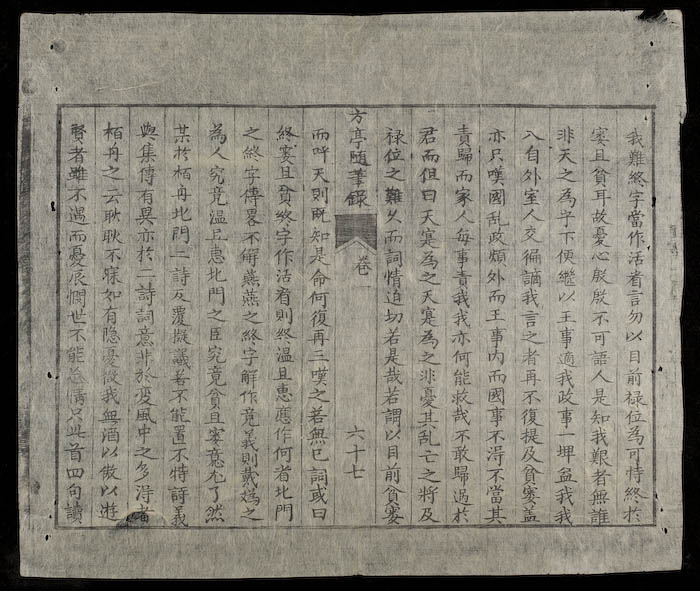 我難終字當作活者言勿以目前祿位為可恃終於
窭且貧耳故憂心殷殷不可語人是知我艱者無誰
非天之為乎下便継以王事適我政事一埤益我我
入自外室人交徧讁我言之者再不復提及貧窭盖
亦只嘆國乱政煩外而王事内而國事不得不當其
責歸而家人每事責我我亦何能救哉不敢歸過於
君而但曰天寔為之天寔為之非憂其乱亡之將及
祿位之難久而詞情迫切若是哉若謂以目前貧窭
方亭随筆錄 卷一 六十七
而呼天則既知是命何復再三嘆之若無已詞或曰
終窭且貧終字作活看則終温且惠應作何省北門
之終字傳畧不解燕燕之終字解作竟義則戴媯之
為人究竟温且惠北門之臣究竟貧且窭意尤了然
某於栢舟北門二詩反覆擬議若不能置不特詩義
與集傳有異亦於二詩詞意非於变風中之多得者
栢舟之云耿耿不寐如有隐憂微我無酒以敖以遊
賢者雖不遇而憂辰憫世不能忘情只此首四句讀